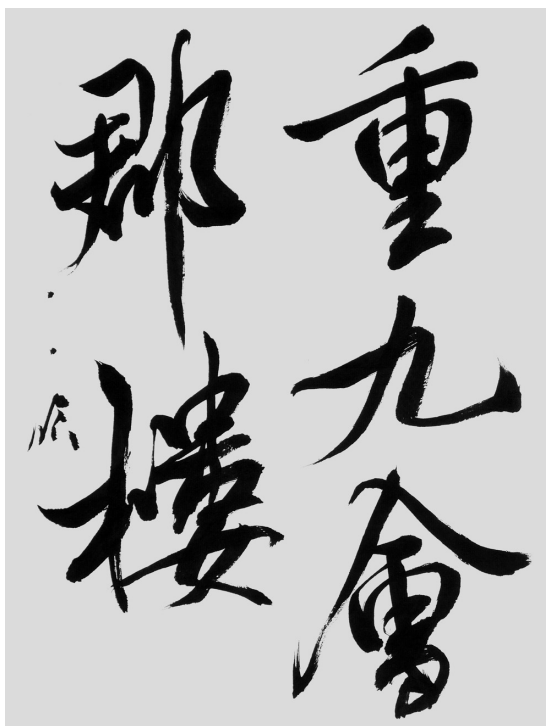 重九會
郡樓